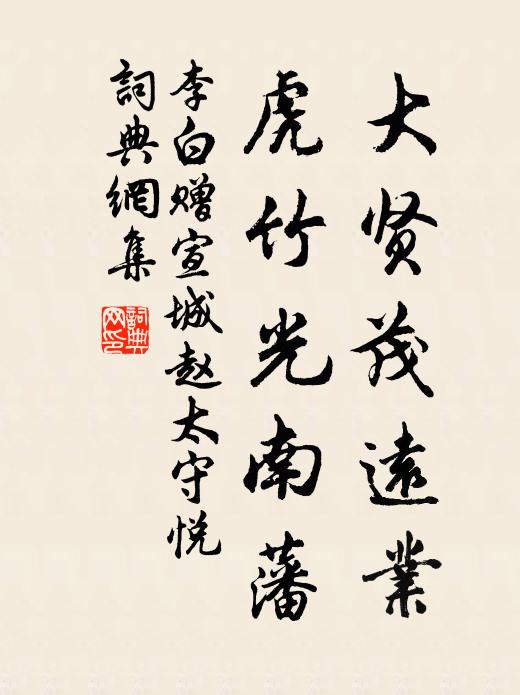 大贤茂遠業
虎竹光南藩
李白赠宣城赵太守悦
詞典網集
詞典网印